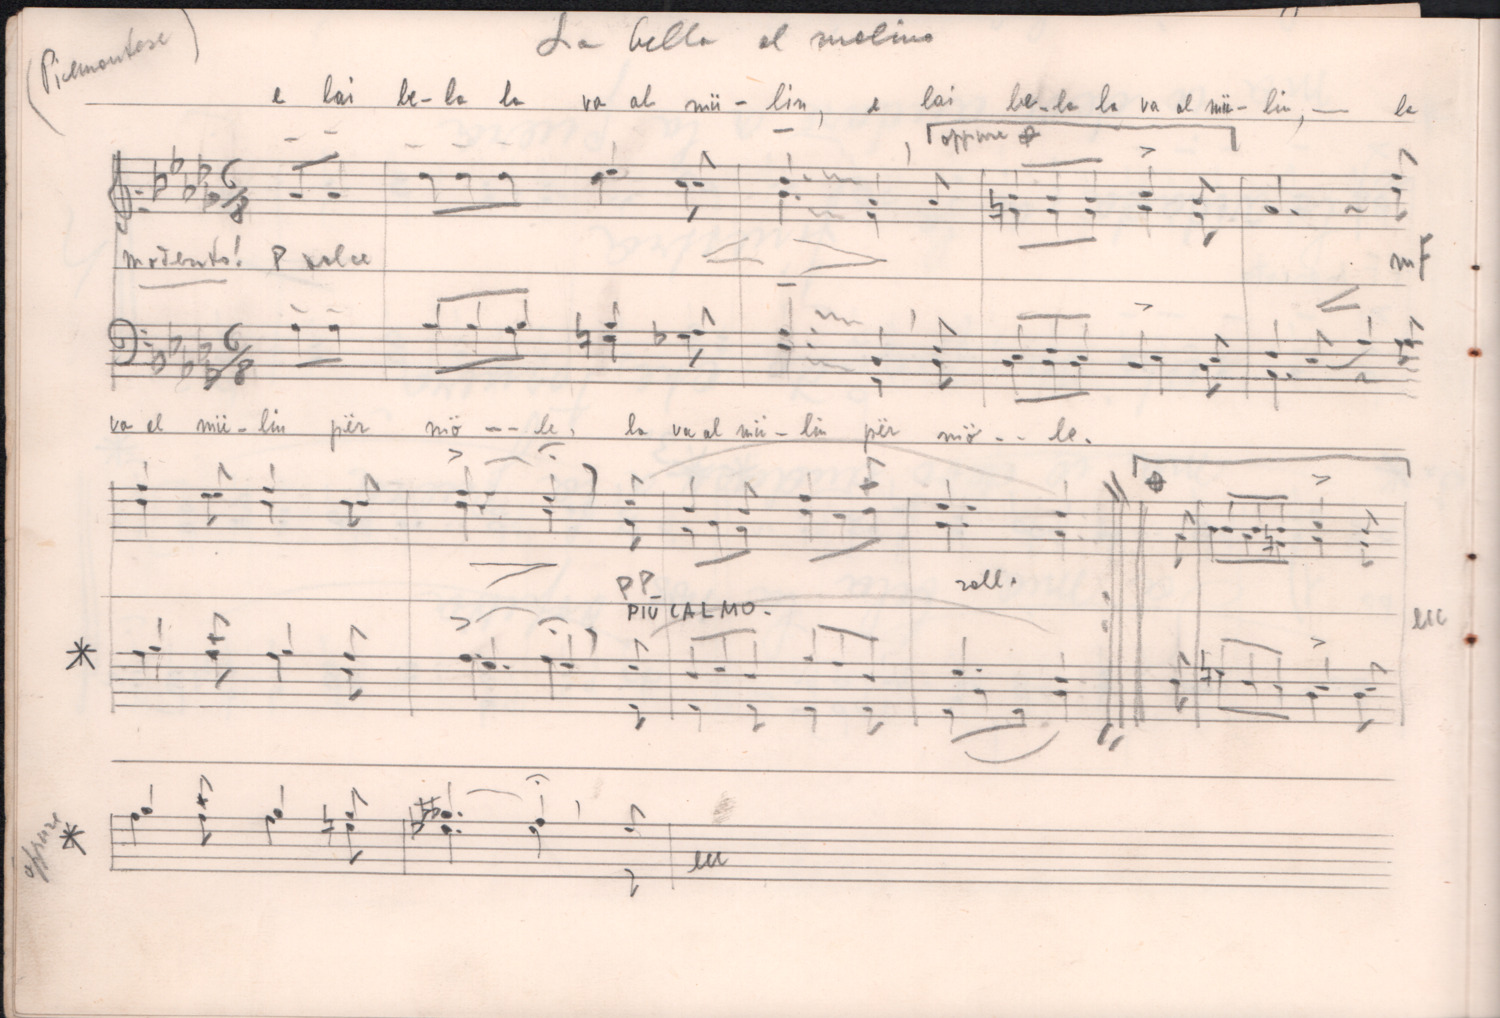 La bella al molino
(Piemontese)
e lai be-la la va al mü-lin, e lai be-la la va al mü-lin, — la
oppure
6/8
moderato! P dolce
mF
6/8
va al mü-lin për mö -- le, la va al mü-lin për mö -- le.
PP
PIÙ CALMO.
rall.
ecc
oppure
ecc